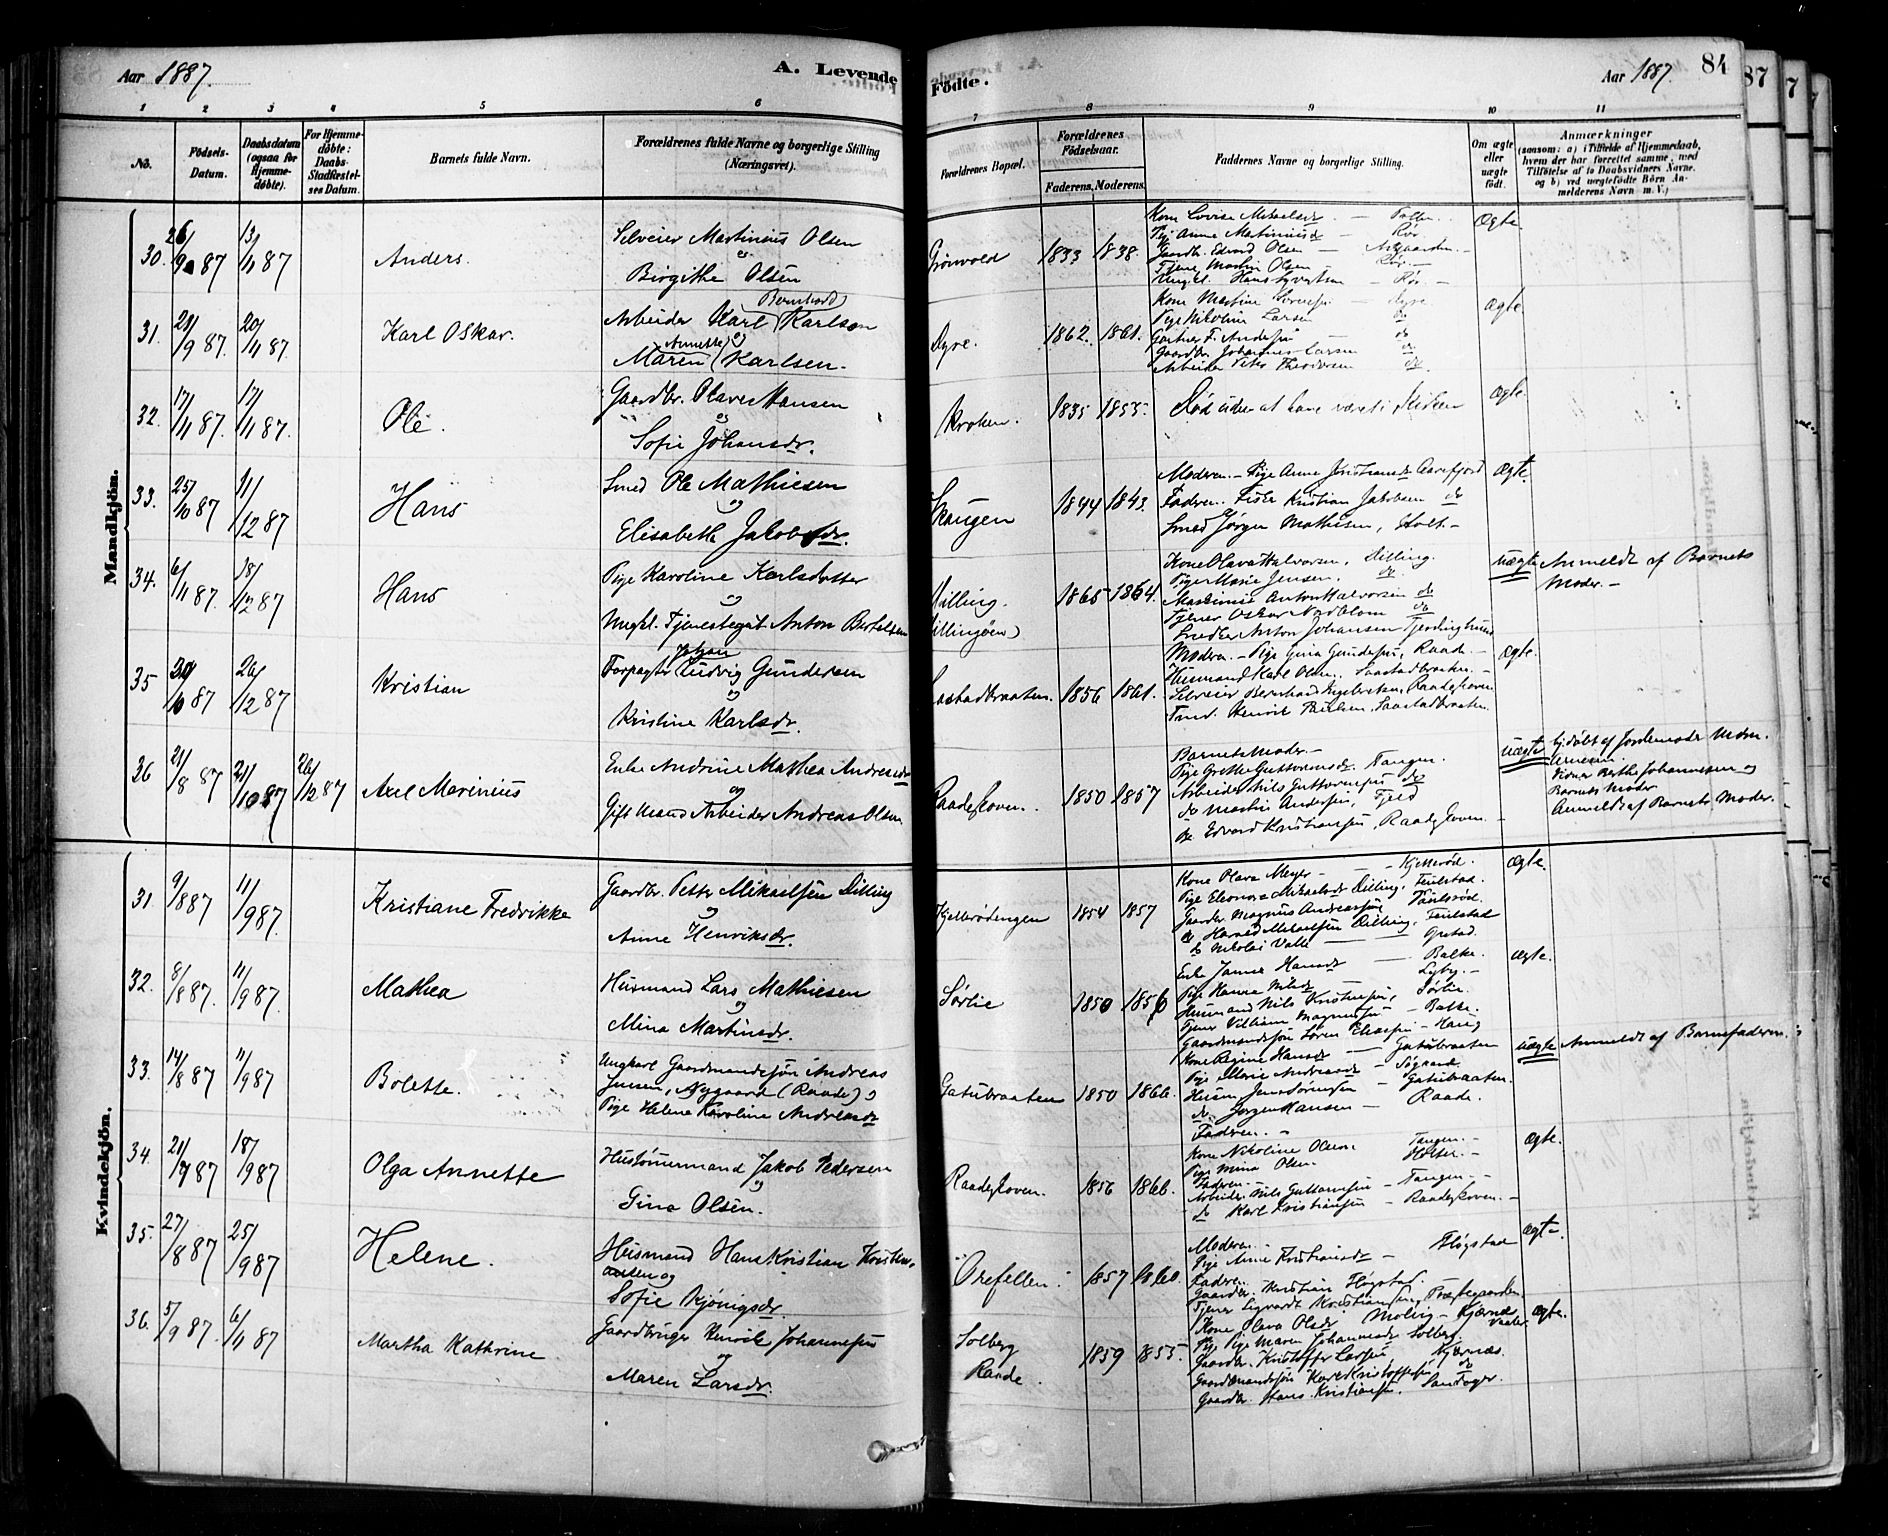 Aar 1887.
A. Levende
Födte.
Aar 1887.
84
87
7
1 2 3 4 5 6
7 8 9 10 11
No.
Födsels-Datum.
Daabsdatum (ogsaa for Hjemmedöbte).
For Hjemmedöbte: Daabs-Stadfæstelses Datum.
Barnets fulde Navn.
Forældrenes fulde Navne og borgerlige Stilling (Næringsvei).
Forældrenes Bopæl.
Forældrenes Födselsaar.
Faderens. Moderens.
Faddernes Navne og borgerlige Stilling.
Om ægte eller uægte födt.
Anmærkninger
(saasom: a) i Tilfælde af Hjemmedaab, hvem der har forrettet samme, med Tilföielse af to Daabsvidners Navne, og b) ved uægtefödte Börn Anmelderens Navn m. V.)
Mandkjön.
30. 26/9 87 13/11 87 Anders.
Selveier Martinius Olsen
og
Birgithe Olsen
Grönvold 1833 1838.
Kone Lovise
Pige Anne Martiniusdr
Gaardbr. Edvard Olsen
Tjener Martin Olsen
Rör.
Ægte
31. 28/9 87. 20/11 87. Karl Oskar.
Bernhard
Arbeider Karl Karlsen
Annette og
Maren Karlsen.
Dyre. 1862. 1861.
Kone Martine
Pige Nikoline Larsen do
do
Gaardbr. Johannes Larsen do
Arbeider do
Ægte.
32. 17/11 87. 17/11 87. Ole.
Gaardbr. Olaves Hansen
og
Sofie Johansdr.
Kroken. 1835 1853.
Död uden at have været i Kirken
Ægte.
33. 25/10 87 11/12 87 Hans
Smed Ole Mathiesen
og
Elisabeth Jakobsdr.
Skaugen 1844 1843.
Moderen. – Pige Anne
Faderen. Kristian Jakobsen do
Smed Jörgen Mathisen,
Ægte.
34. 6/11 87. 18/12 87 Hans
Pige Karoline Karlsdatter
og
Ungkl. Tjenestegut Anton Bertelsen
Dilling.
(Dillingöen) 1865 1864.
Kone Olava Halvorsen, Dilling.
Pige Marie Jensen, do.
Anton Halvorsen do
Tjener Oskar Nordblom do
Anton Johansen
uægte
Anmeldt af Barnets
Moder. –
35 30/10 87 26/12 87 Kristian
Johan
Forpagter Ludvig Gundersen
og
Kristine Karlsdr.
Saastadbraaten. 1856 1861.
Moderen. – Pige Gina Gundersen, Raade –
Husmand Karl Olsen, Saastadbraaten. –
Selveier Bernhard Raadeskoven
Henrik Paulsen, Saastadbraaten.
ægte.
36 21/8 87 21/10 87 26/12 87 Axel Marinius
Enke Andrine Mathea Andreasdr
og
Gift Mand Arbeider Andreas Olsen
Raadeskoven. 1850 1857
Barnets Moder. –
Pige Grethe Guttormsdr. Tangen.
Arbeider Nils Guttormsen do
do Martin Andersen, Fjeld
do Edvard Kristiansen, Raadeskoven. –
uægte
hjdöbt af Jordemoder
Vidner Berthe Johannesen og
Barnets Moder
Anmeldt af Barnets Moder.
Kvindekjön.
31. 9/8 87 11/9 87. Kristiane Fredrikke
Gaardbr. Petter Mikaelsen Dilling
og
Anne Henriksdr.
Kjellerödengen 1854 1857
Kone Olava Meyer – Kjelleröd.
Pige Eleonora Mikaelsdr Dilling,
Gaardbr Magnus Andreassen
do Harald Mikaelsen Dilling,
do Nikolai Valle
Ægte.
32. 8/8 87. 11/9 87. Mathea
Husmand Lars Mathiesen
og
Mina Martinsdr.
Sörlie 1850 1856
Enke Hansdr – Balke.
Pige Hanna Nilsdr
Husmand Nils Kristensen, Sörlie.
Tjener Villiam Magnussen – Balke.
Gaardmandssön Sören – Haug
ægte.
33. 14/8 87 11/9 87 Bolette.
Ungkarl Gaardmandssön Andreas
Jensen, Nygaard (Raade) og
Pige Helene Karoline Andreasdr
Gatubraaten 1850 1866.
Kone Regine Hansdr – Gatubraaten
Pige Marie Andreasdr –
Husm. Jens Sörensen – Gatubraaten.
do. Jörgen Hansen – Raade.
Faderen. –
uægte
Anmeldt af Barnefaderen.
34. 21/7 87 18/9 87 Olga Annette
Hustömmermand Jakob Pedersen
og
Gina Olsen.
Raadeskoven. 1856 1866.
Kone Nikoline Olsen Tangen. –
Pige Mina Olsen
Faderen. –
Arbeider Nils Guttormsen – Tangen. –
do Karl Kristiansen – Raadeskoven. –
Ægte.
35. 27/8 87 25/9 87 Helene.
Husmand Hans Kristian Kristiansen
og
Sofie Kjönigsdr.
Orefellen. 1857 1860.
Moderen. –
Pige Anne Kristiansdr – Högstad
Faderen.
Gaardbr. Kristian Högstad.
Tjener Sigvardt Kristiansen, Præstegaarden.
Ægte.
36. 5/9 87. 6/11 87 Martha Kathrine
Gaardbruger Henrik Johannesen
og
Maren Larsdr.
Solberg
Raade. 1859 1855.
Kone Olava Olsdr
Pige Maren Johannesdr Solberg.
Gaardbr. Kristoffer Larsen Kjærnæs.
Gaardmandssön Karl Kristoffersen do
Gaardbr. Hans Kristiansen.
ægte.